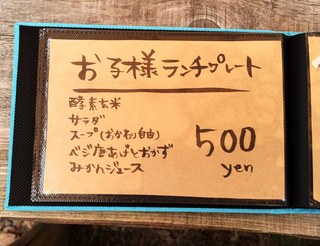 お子様ランチプレート
酵素玄米
サラダ
スープ(おかわり自由)
ベジ唐あげとおかず
みかんジュース
500
yen